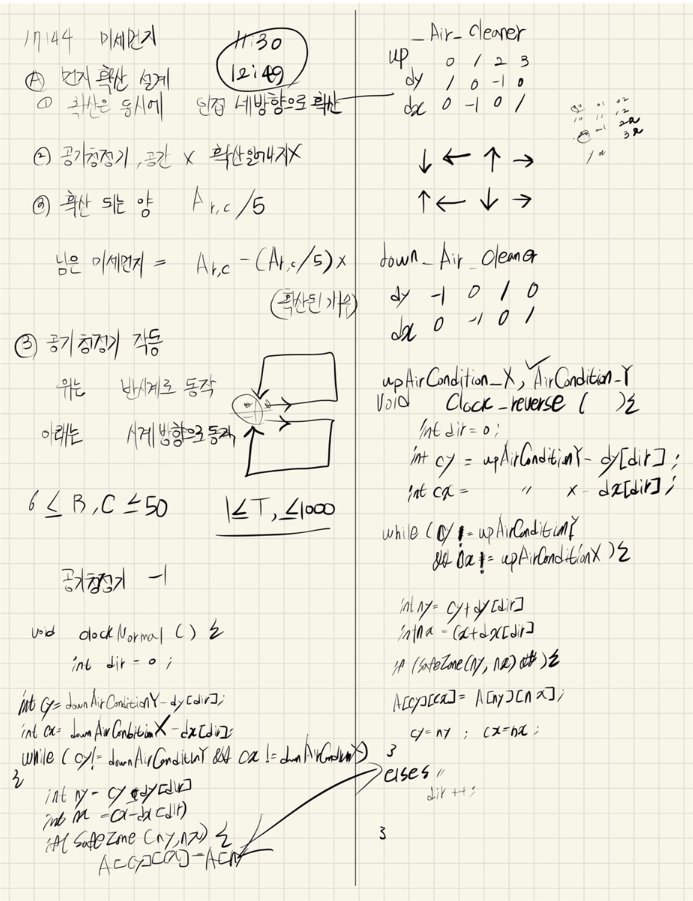 17144 미세먼지
11:30
12:49
Ⓐ 먼지 확산 설계
① 확산은 동시에 인접 네방향으로 확산
② 공기청정기, 공간 X 확산일어나지X
② 확산 되는 양 Ar,c /5
남은 미세먼지 = Ar,c - (Ar,c/5) x
(확산된 개수)
③ 공기청정기 작동
위는 반시계로 동작
아래는 시계방향으로동작
6 ≤ R, C ≤ 50 1≤T, ≤1000
공기청정기 -1
void clockNormal () {
int dir = 0;
int cy = downAirConditionY - dy[dir];
int cx = downAirConditionX - dx[dir];
while ( cy!= downAirConditionY && cx != downAirConditionX)
{
int ny = cy + dy[dir]
int nx = cx - dx[dir]
if( SafeZone (ny, nx) {
A[cy][cx] = A[n
_Air_Cleaner
up 0 1 2 3
dy 1 0 -1 0
dx 0 -1 0 1
↓ ← ↑ →
↑ ← ↓ →
down_Air_Cleaner
dy -1 0 1 0
dx 0 -1 0 1
upAirCondition_X, AirCondition_Y
void Clock_reverse ( ) {
int dir = 0;
int cy = upAirConditionY - dy[dir];
int cx = " X - dx[dir];
while ( cy != upAirConditionY
&& cx != upAirConditionX ) {
int ny = cy + dy[dir]
int nx = cx + dx[dir]
if (SafeZone(ny, nx) ) {
A[cy][cx] = A[ny][nx];
cy = ny ; cx = nx ;
}
else {
dir ++;
}